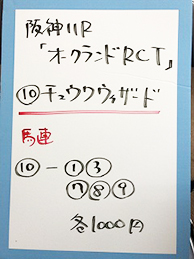 阪神11R
「オークランドRCT」
⑩チュウワウィザード
馬連
⑩-①③
⑦⑧⑨
各1000円